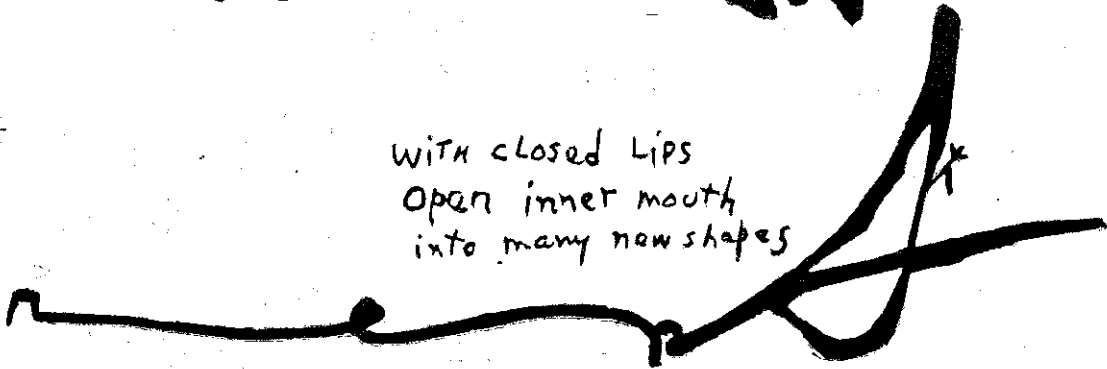 WITH cLosed Lips
Open inner mouth
into many new shapes